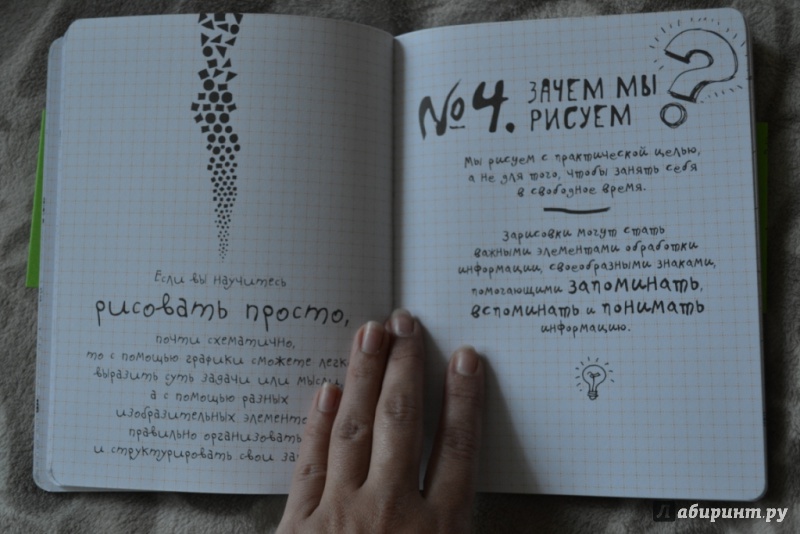 Если вы научитесь
рисовать просто,
почти схематично,
то с помощью графики сможете
выразить суть задачи или
а с помощью разных
изобразительных
правильно организовать
и структурировать свои
№4. ЗАЧЕМ МЫ
РИСУЕМ?
Мы рисуем с практической целью,
а не для того, чтобы занять себя
в свободное время.
Зарисовки могут стать
важными элементами обработки
информации, своеобразными знаками,
помогающими запоминать,
вспоминать и понимать
информацию.
Лабиринт.ру